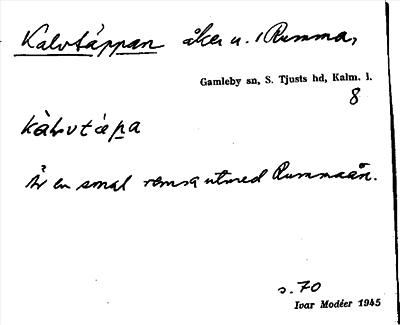 Kalvtäppan åker u. Rumma,
Gamleby sn, S. Tjusts hd, Kalm. l.
8
kàlvtépa
Är en smal remsa utmed Rummaån.
s. 70
Ivar Modéer 1945